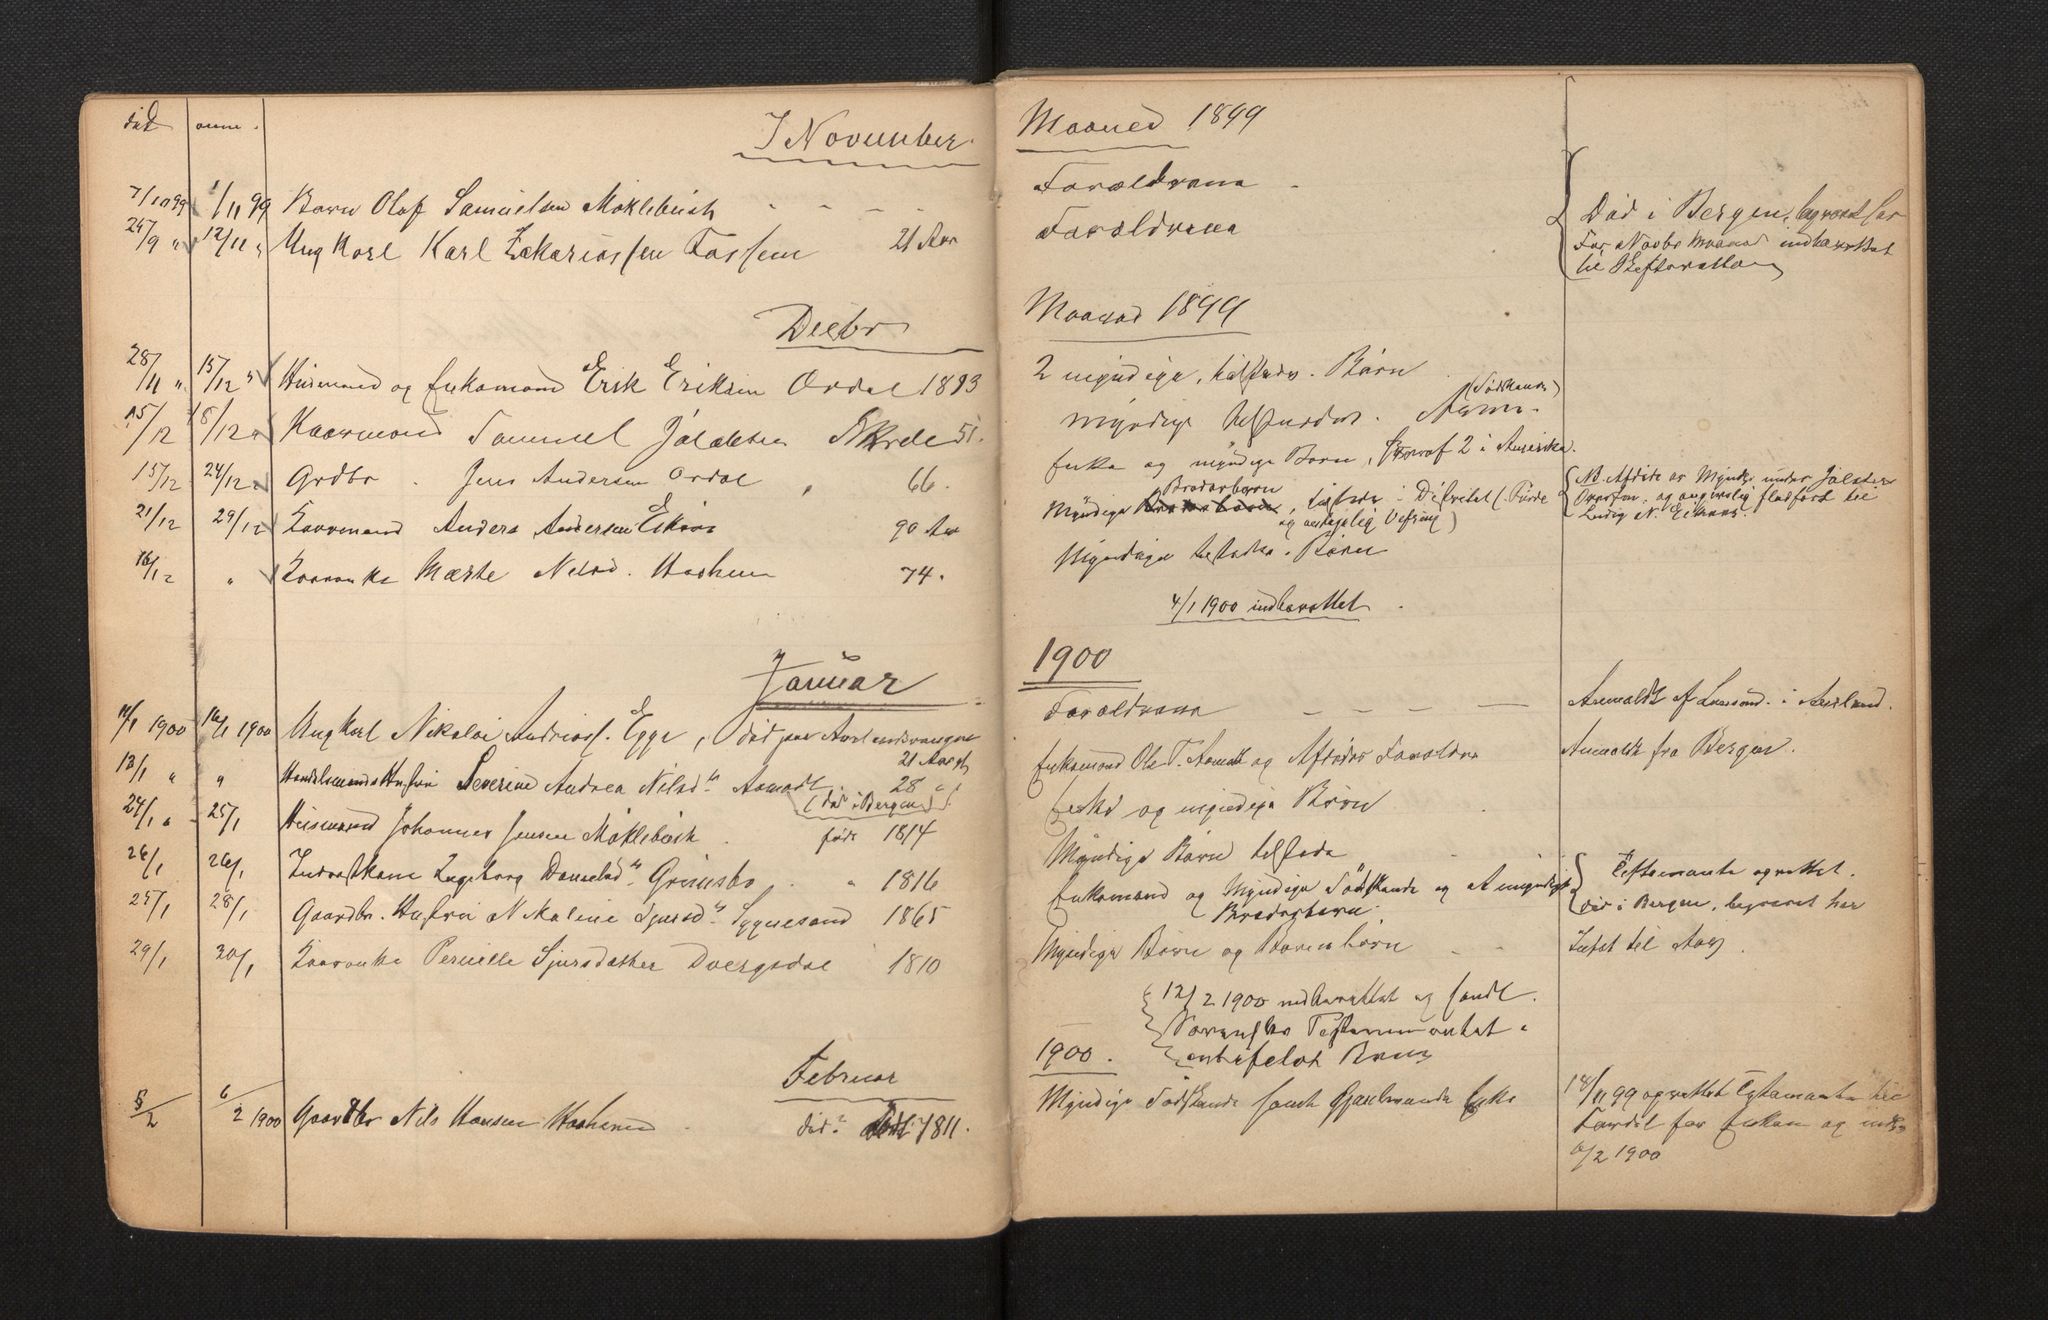 død anm.
I November Maaned 1899
7/10 99 1/11 99 Barn Olaf Samuelsen Møklebust Foræeldrene
24/9 " 12/11 " Ungkarl Karl Zakariassen Fossem 21 Aar Forældrene
Død i Bergen, begravet her
For Novbr Maaned indberettet
til Skifteretten
Decbr Maaned 1899
28/11 " 15/12 " Husmand og Enkemand Erik Eriksen Ordal 1823 2 myndige, tilstede. Børn
15/12 18/12 " Kaarmand Samuel Skrede 51. myndige tilstedev. (Sødskende)
15/12 24/12 " Grdbr. Jens Andersen Ordal " 66. Enke og myndige Børn, hvoraf 2 i Amerika.
21/12 29/12 Kaarmand Anders Andersen Eikaas 90 Aar Myndige Broderbørn, tilstede i Distriktet (Førde
og Vefring)
N. Afdøde er Myndl. under Jølster
Overfm. og
Ludvig N. Eikaas.
16/12 " Kaarenke Marte Nilsd. Aashem 74. Myndige tilstedev. Børn
4/1 1900 indberettet
Januar 1900
11/1 1900 16/1 1900 Ungkarl Nikolai Andreass. Egge, død paa Aurlandsvangen
21 Aar gl. Forældrene Anmeldt af Lensmd. i Aurland.
13/1 " " Handelsmands Hustru Severine Andrea Nilsd. Aamodt. 28 "
(død i Bergen) Enkemand Ole T. Aamodt og Afdødes Forældre Anmeldt fra Bergen.
24/1 " 25/1 Husmand Johannes Jensen Møklebust født 1814 Enke og myndige Børn
26/1 26/1 Inderstkone Ingeborg Danielsd. Grimsbo " 1816 Myndige Børn tilstede
25/1 28/1 Gaardbr. Hustru Nikoline Sjursd. Sygnesand 1865 Enkemand og Myndige Sødskende og umyndige
Broderbørn.
Testamente oprettet.
død i Bergen, begravet her
29/1 30/1 Kaarenke Pernille Sjursdatter Dvergsdal 1810 Myndige Børn og Barnebørn
12/2 1900 indberettet og sendt
Testamentet
Februar 1900.
5/2 6/2 1900 Gaardbr Nils Hansen Aashem død. født 1811. Myndige Sødskende samt Gjenlevende Enke
18/11 99 oprettet Testamente til
Fordel for Enken og
6/2 1900